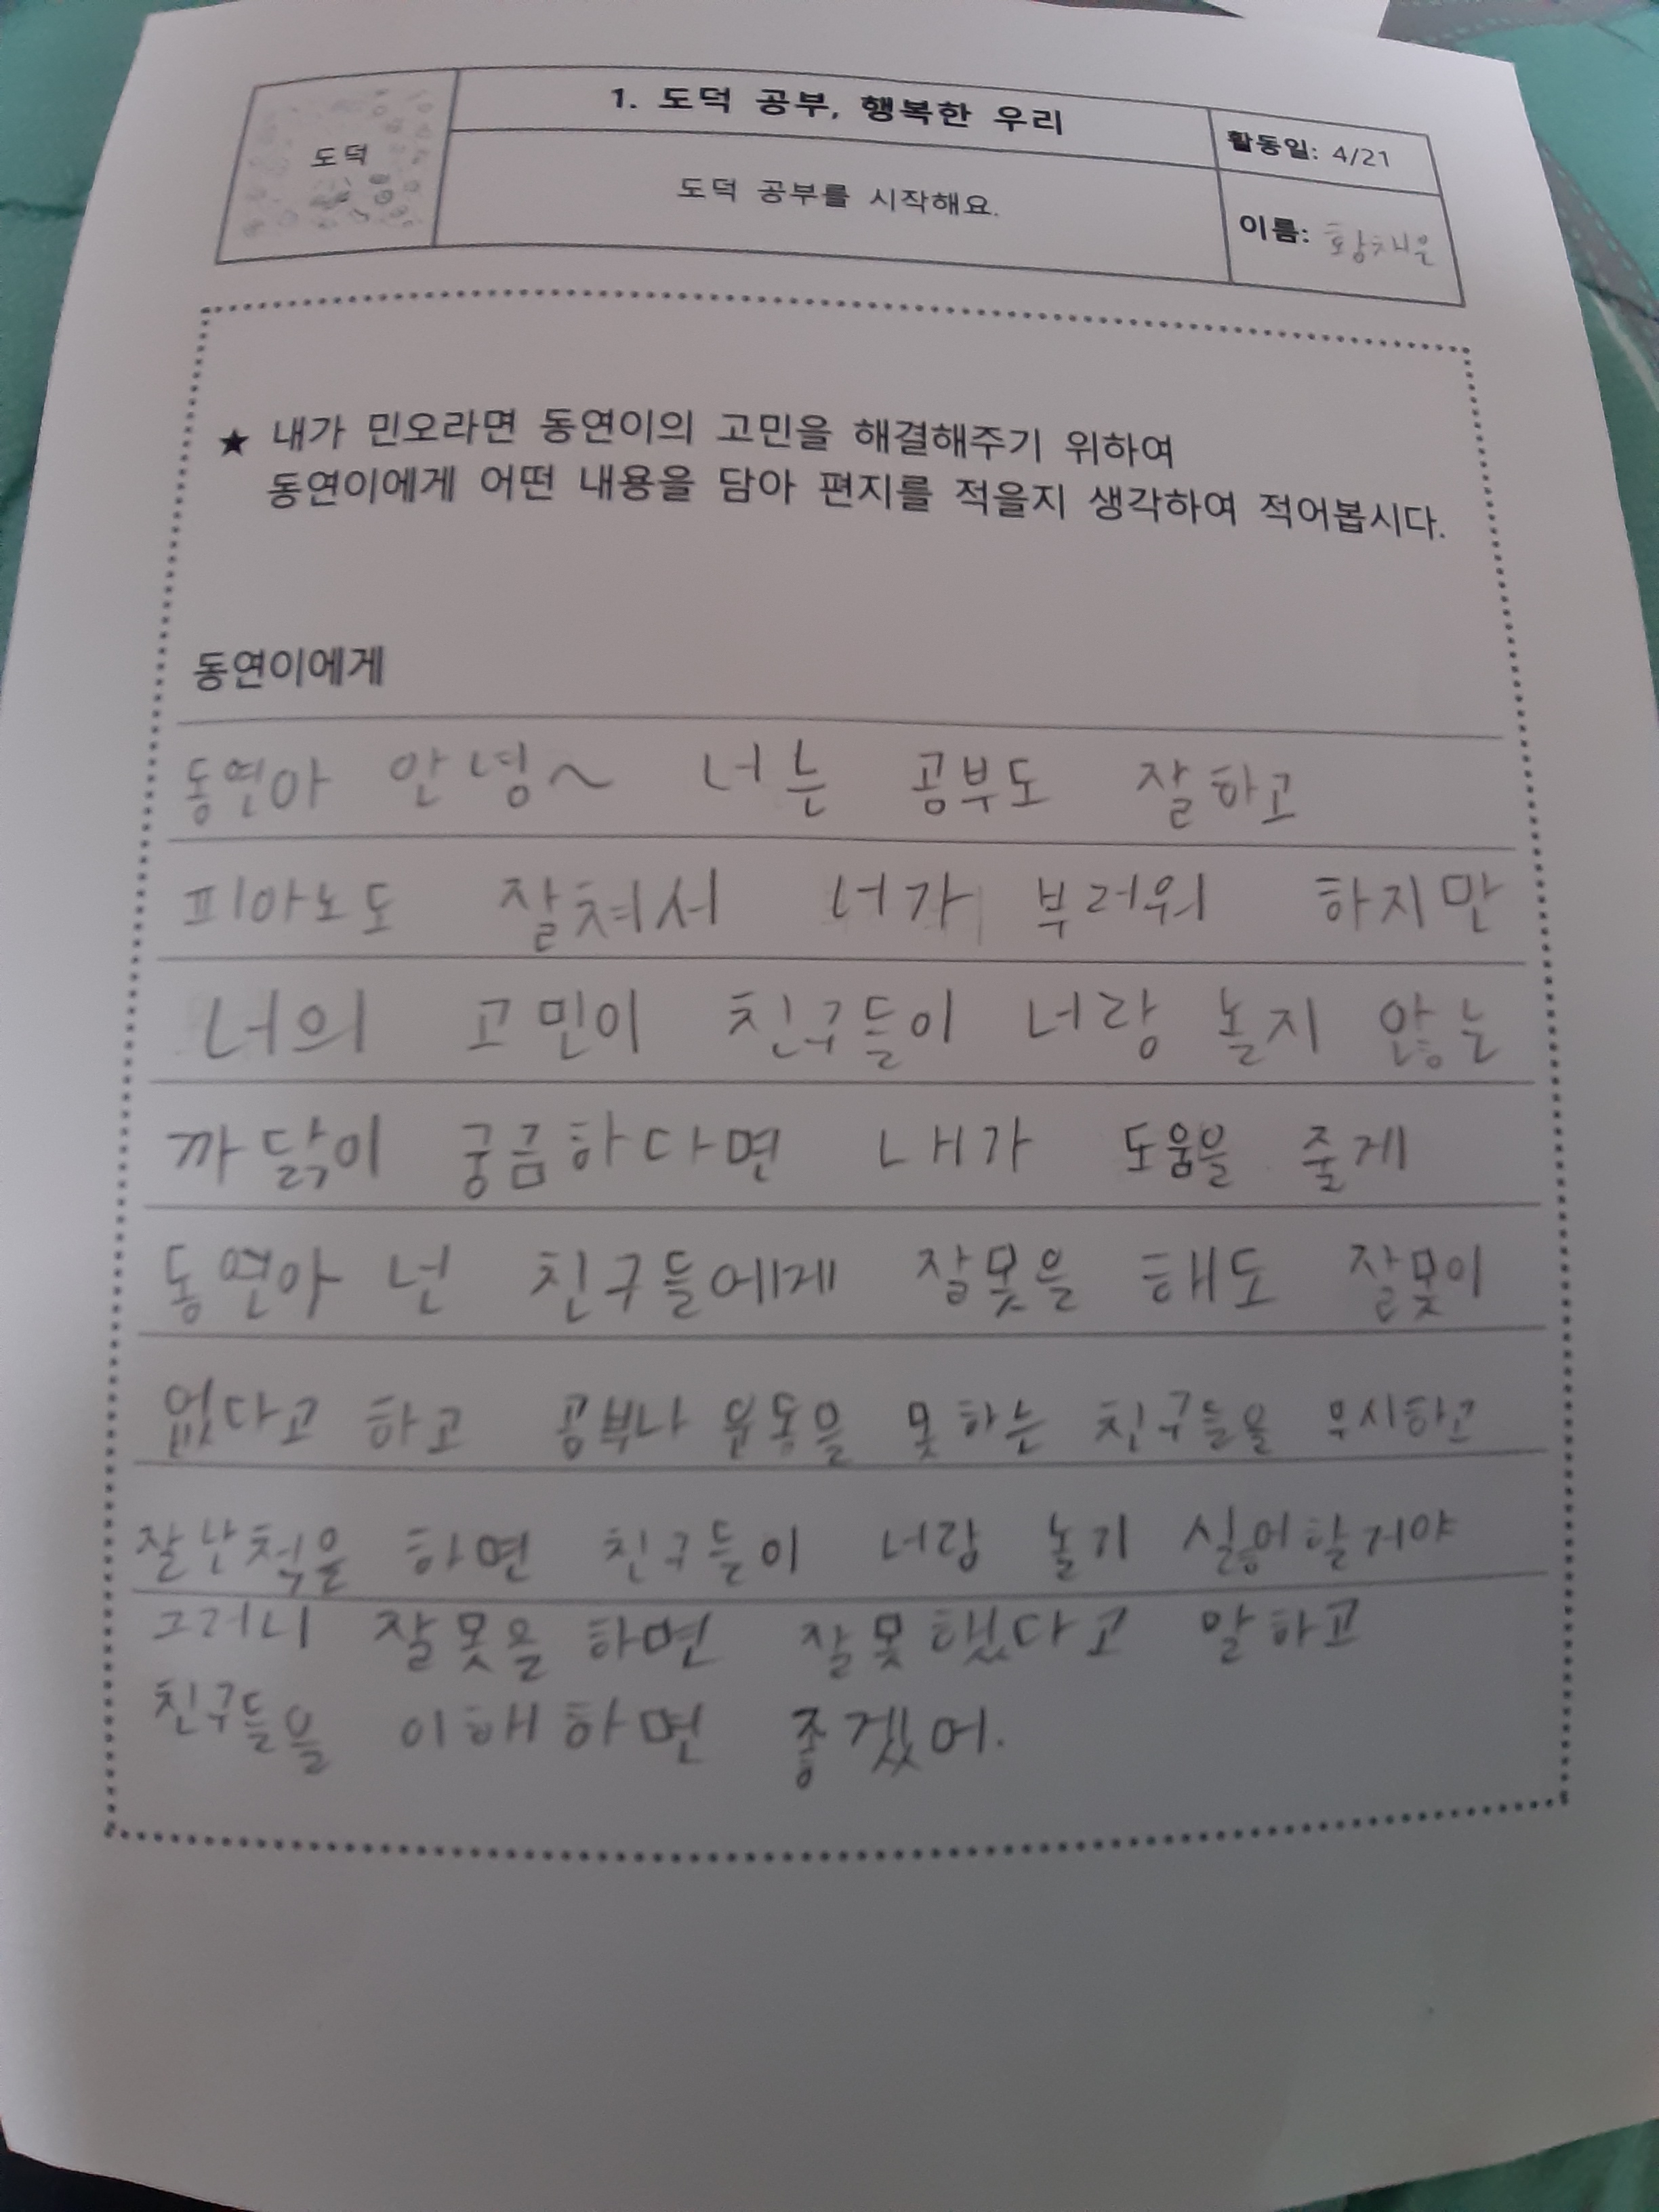 도덕
1. 도덕 공부, 행복한 우리
도덕 공부를 시작해요.
활동일: 4/21
이름: 황채은
★ 내가 민오라면 동연이의 고민을 해결해주기 위하여
동연이에게 어떤 내용을 담아 편지를 적을지 생각하여 적어봅시다.
동연이에게
동연아 안녕~ 너는 공부도 잘하고
피아노도 잘쳐서 너가 부러워 하지만
너의 고민이 친구들이 너랑 놀지 않는
까닭이 궁금하다면 내가 도움을 줄게
동연아 넌 친구들에게 잘못을 해도 잘못이
없다고 하고 공부나 운동을 못하는 친구들을 무시하고
잘난척을 하면 친구들이 너랑 놀기 싫어할거야
그러니 잘못을 하면 잘못했다고 말하고
친구들을 이해하면 좋겠어.